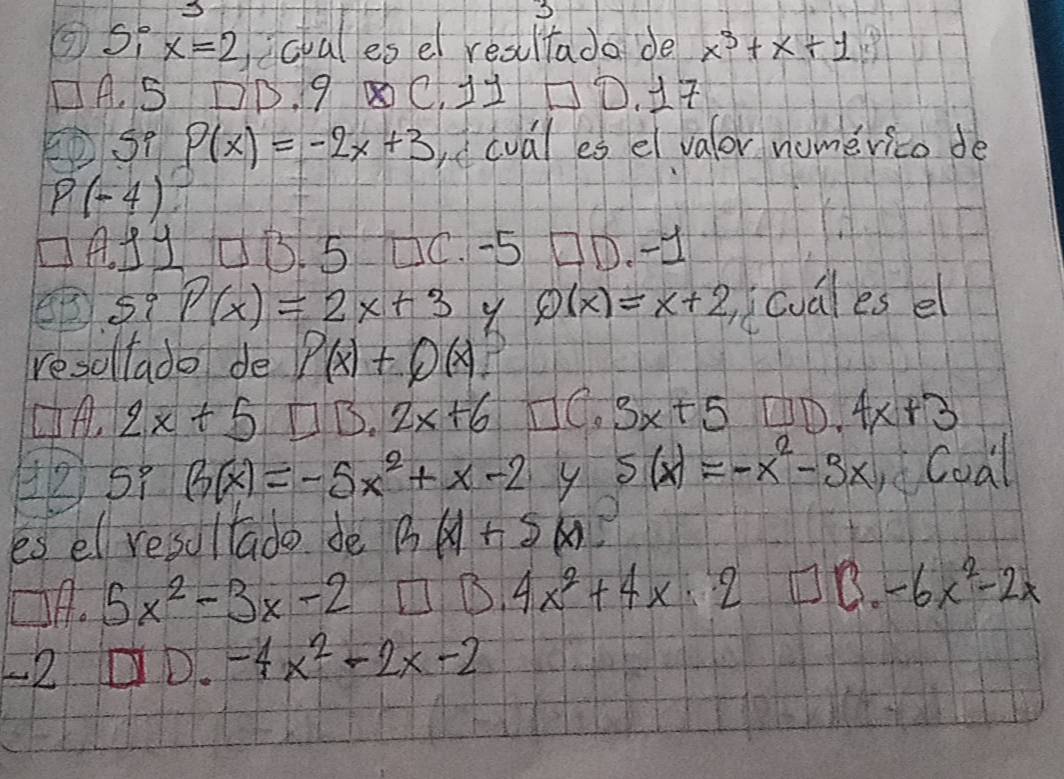 ⑨ Si x=2, ¿cual es el resultado de x³+x+1?
□ A. 5 □ B. 9 ☒ C. 11 □ D. 17
⑩ Si P(x) = -2x+3, ¿cuál es el valor numérico de
P(-4)?
□ A. 11 □ B. 5 □ C. -5 □ D. -1
⑪ Si P(x) = 2x+3 y Q(x)=x+2, ¿Cuál es el
resultado de P(x) + Q(x)?
□ A. 2x+5 □ B. 2x+6 □ C. 3x+5 □ D. 4x+3
⑫ Si R(x) = -5x²+x-2 y S(x) = -x²-3x, ¿Cuál
es el resultado de R(x) + S(x)?
□ A. 5x²-3x-2 □ B. 4x²+4x-2 □ C. -6x²-2x
-2 □ D. -4x²-2x-2